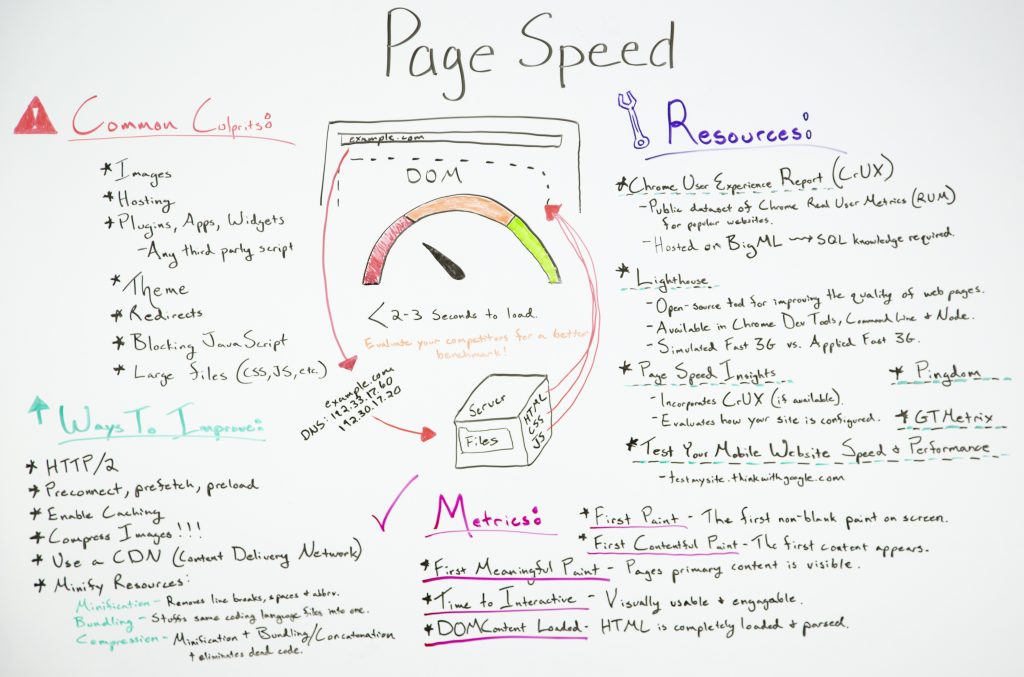 Page Speed
Common Culprits:
* Images
* Hosting
* Plugins, Apps, Widgets
- Any third party script
* Theme
* Redirects
* Blocking JavaScript
* Large files (CSS, JS, etc.)
Ways To Improve:
* HTTP/2
* Preconnect, prefetch, preload
* Enable Caching
* Compress Images!!!
* Use a CDN (Content Delivery Network)
* Minify Resources:
Minification - Removes line breaks, spaces & abbrv.
Bundling - Stuffs same coding language files into one.
Compression - Minification + Bundling/Concatonation
+ eliminates dead code.
example.com
DOM
< 2-3 Seconds to load.
Evaluate your competitors for a better
benchmark!
example.com
DNS: 192.33.17.60
192.30.17.20
Server
Files
HTML
CSS
JS
Resources:
* Chrome User Experience Report (CrUX)
- Public dataset of Chrome Real User Metrics (RUM)
for popular websites.
- Hosted on BigML → SQL knowledge required.
* Lighthouse
- Open-source tool for improving the quality of web pages.
- Available in Chrome Dev Tools, Command Line & Node.
- Simulated Fast 3G vs. Applied Fast 3G.
* Page Speed Insights
- Incorporates CrUX (if available).
- Evaluates how your site is configured.
* Pingdom
* GTMetrix
* Test Your Mobile Website Speed & Performance
- testmysite.thinkwithgoogle.com
Metrics:
* First Paint - The first non-blank paint on screen.
* First Contentful Paint - The first content appears.
* First Meaningful Paint - Pages primary content is visible.
* Time to Interactive - Visually usable & engagable.
* DOMContent Loaded - HTML is completely loaded & parsed.